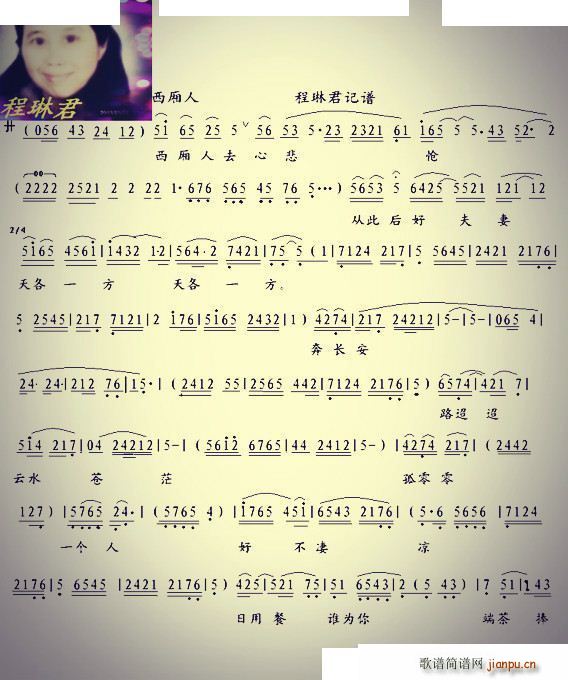 程琳君
西厢人 程琳君记谱
(056 43 24 12) 5i 65 25 5 ∨ 56 53 5·23 2321 61 i65 5 5·43 52· 2
西厢人去心悲 怆
(2222 2521 2 2 22 1·676 565 45 76 5···) 5653 5 6425 5521 121 12
从此后好 夫妻
2/4
5i65 456i|i432 1·2|564·2 7421|75 5 (1|7124 217|5 5645|2421 2176|
天各一方 天各一方。
5 2545|217 7121|2 i76|5i65 2432|1) 4274|217 24212|5-|5-|065 4|
奔长安
24·24·|212 76|15·|(2412 55|2565 442|7124 2176|5) 6574|421 7|
路迢迢
5i4 217|04 24212|5-|(56i2 6765|44 2412|5-)|4274 217|(2442
云水 苍 茫 孤零零
127)|5765 24·|(5765 4)|i765 45i|6543 217|(5·6 5656|7124
一个人 好 不凄 凉
2176|5 6545|2421 2176|5) 425|521 75|51 6543|2 (5 43)|7 51|143
日用餐 谁为你 端茶捧
歌谱简谱网 jianpu.cn